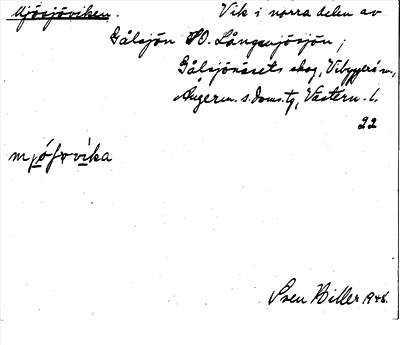 Mjösjöviken. Vik i norra delen av
Gålsjön SO. Långmjösjön;
Gålsjönäsets skog, Vibyggerå sn,
Ångerm. s. doms. tg, Västern. l.
22
mjósovika
Sven Biller 1946.